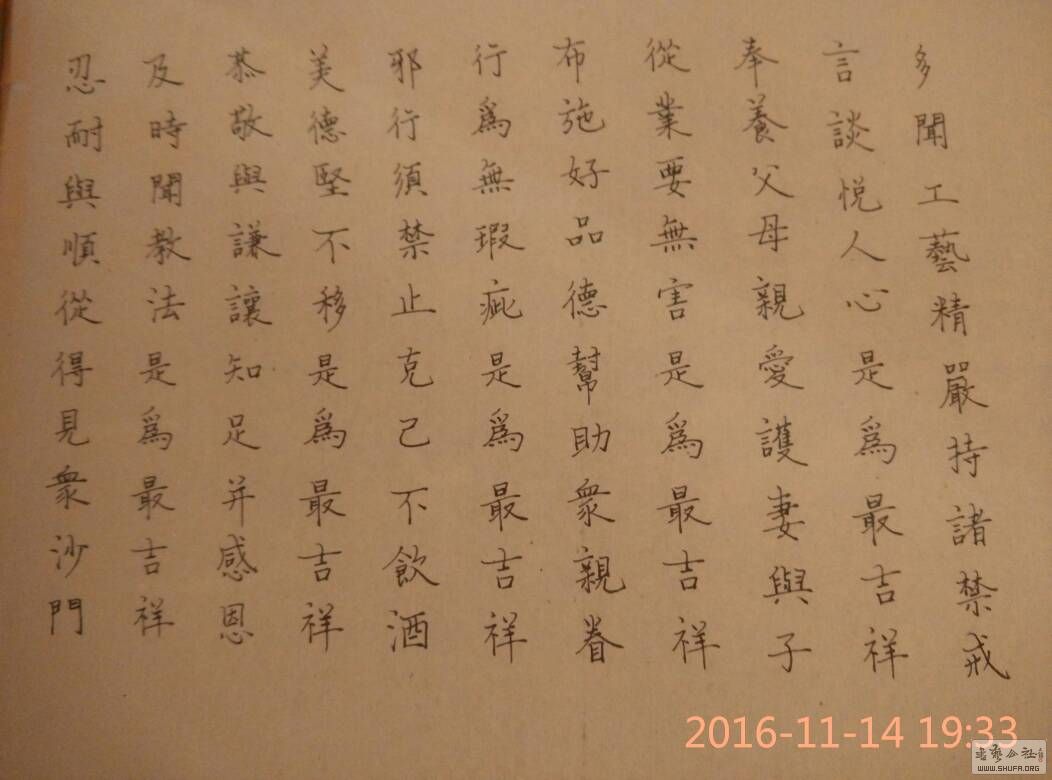 多聞工藝精嚴持諸禁戒
言談悅人心是爲最吉祥
奉養父母親愛護妻與子
從業要無害是爲最吉祥
布施好品德幫助衆親眷
行爲無瑕疵是爲最吉祥
邪行須禁止克己不飲酒
美德堅不移是爲最吉祥
恭敬與謙讓知足并感恩
及時聞教法是爲最吉祥
忍耐與順從得見衆沙門
2016-11-14 19:33
書藝公社
WWW.SHUFA.ORG